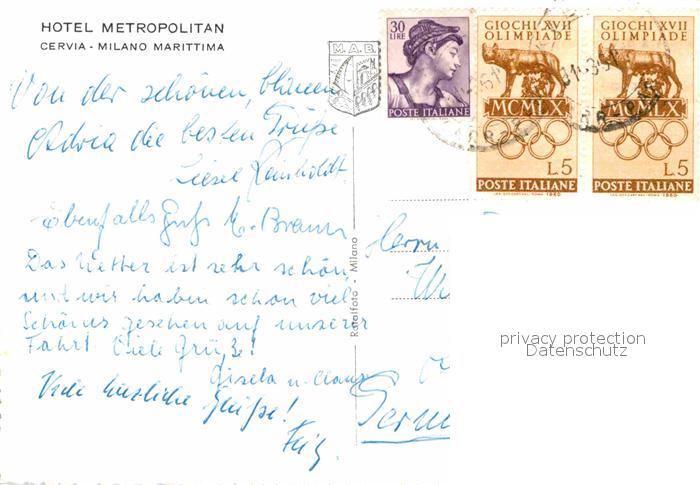 HOTEL METROPOLITAN
CERVIA - MILANO MARITTIMA
Von der schönen, blauen
Adria die besten Grüße
Liesel Reinholdt
Ebenfalls Gruß E. Braun
Das Wetter ist sehr schön,
und wir haben schon viel
Schönes gesehen auf unserer
Fahrt Viele Grüße!
Gisela u. Claus
Viele herzliche Grüße!
Fritz
M.A.B.
Rotalfoto - Milano
30
LIRE
POSTE ITALIANE
GIOCHI XVII
OLIMPIADE
MCMLX
L5
POSTE ITALIANE
GIOCHI XVII
OLIMPIADE
MCMLX
L5
POSTE ITALIANE
Herrn
Germ
privacy protection
Datenschutz